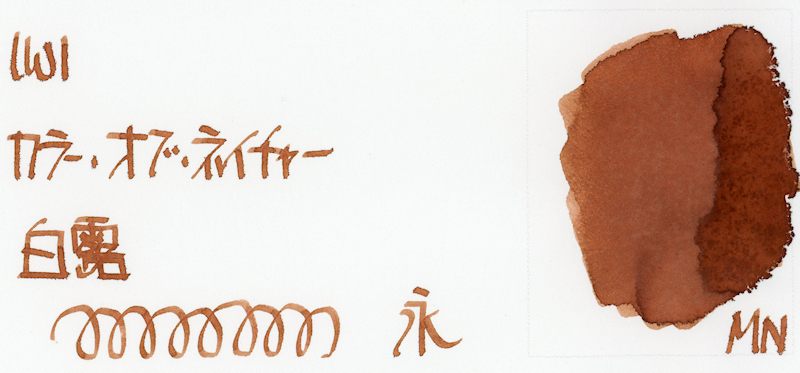 IWI
カラー・オブ・ネイチャー
白露
永
MN